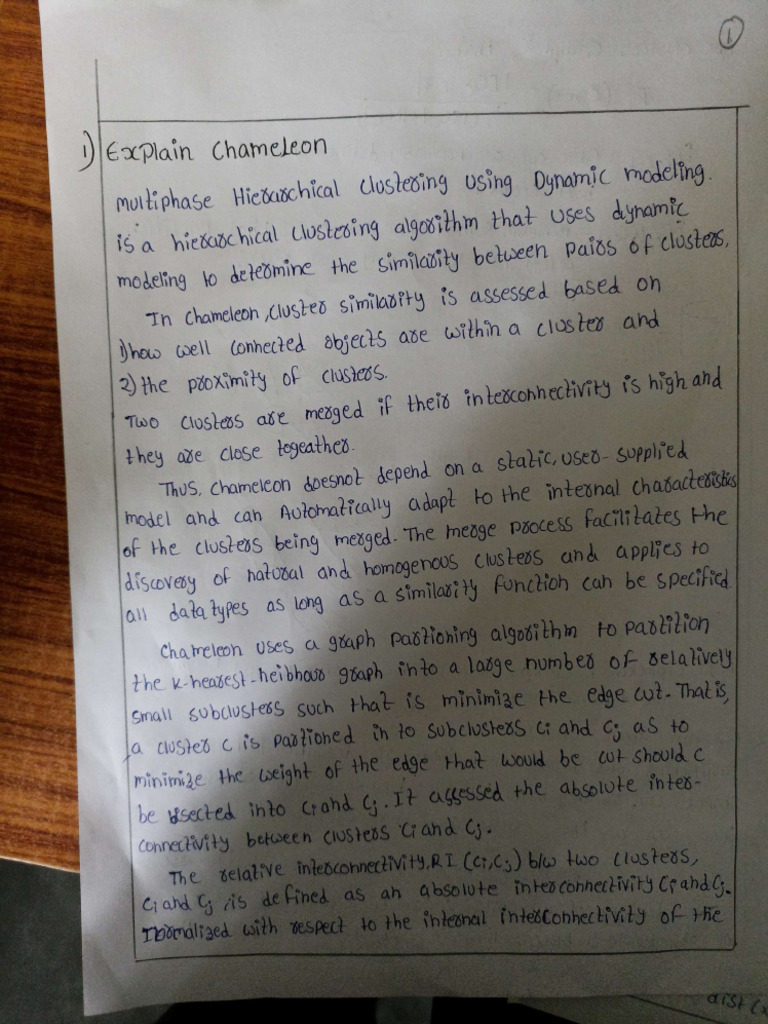 1
1) Explain Chameleon
Multiphase Hierarchical clustering using Dynamic modeling.
is a hierarchical clustering algorithm that uses dynamic
modeling to determine the similarity between pairs of clusters.
In Chameleon, cluster similarity is assessed based on
1) how well connected objects are within a cluster and
2) the proximity of clusters.
Two clusters are merged if their interconnectivity is high and
they are close togeather.
Thus, Chameleon doesnot depend on a static, user-supplied
model and can Automatically adapt to the internal characteristics
of the clusters being merged. The merge process facilitates the
discovery of natural and homogenous clusters and applies to
all data types as long as a similarity function can be specified
Chameleon uses a graph partioning algorithm to partition
the k-nearest-neibhour graph into a large number of relatively
small subclusters such that is minimize the edge cut. That is,
a cluster c is partioned in to subclusters Ci and Cj as to
minimize the weight of the edge that would be cut should c
be bisected into Ci and Cj. It assessed the absolute inter-
connectivity between clusters Ci and Cj.
The relative interconnectivity, RI (Ci, Cj) b/w two clusters,
Ci and Cj is defined as an absolute interconnectivity Ci and Cj.
Normalized with respect to the internal interconnectivity of the
dist (